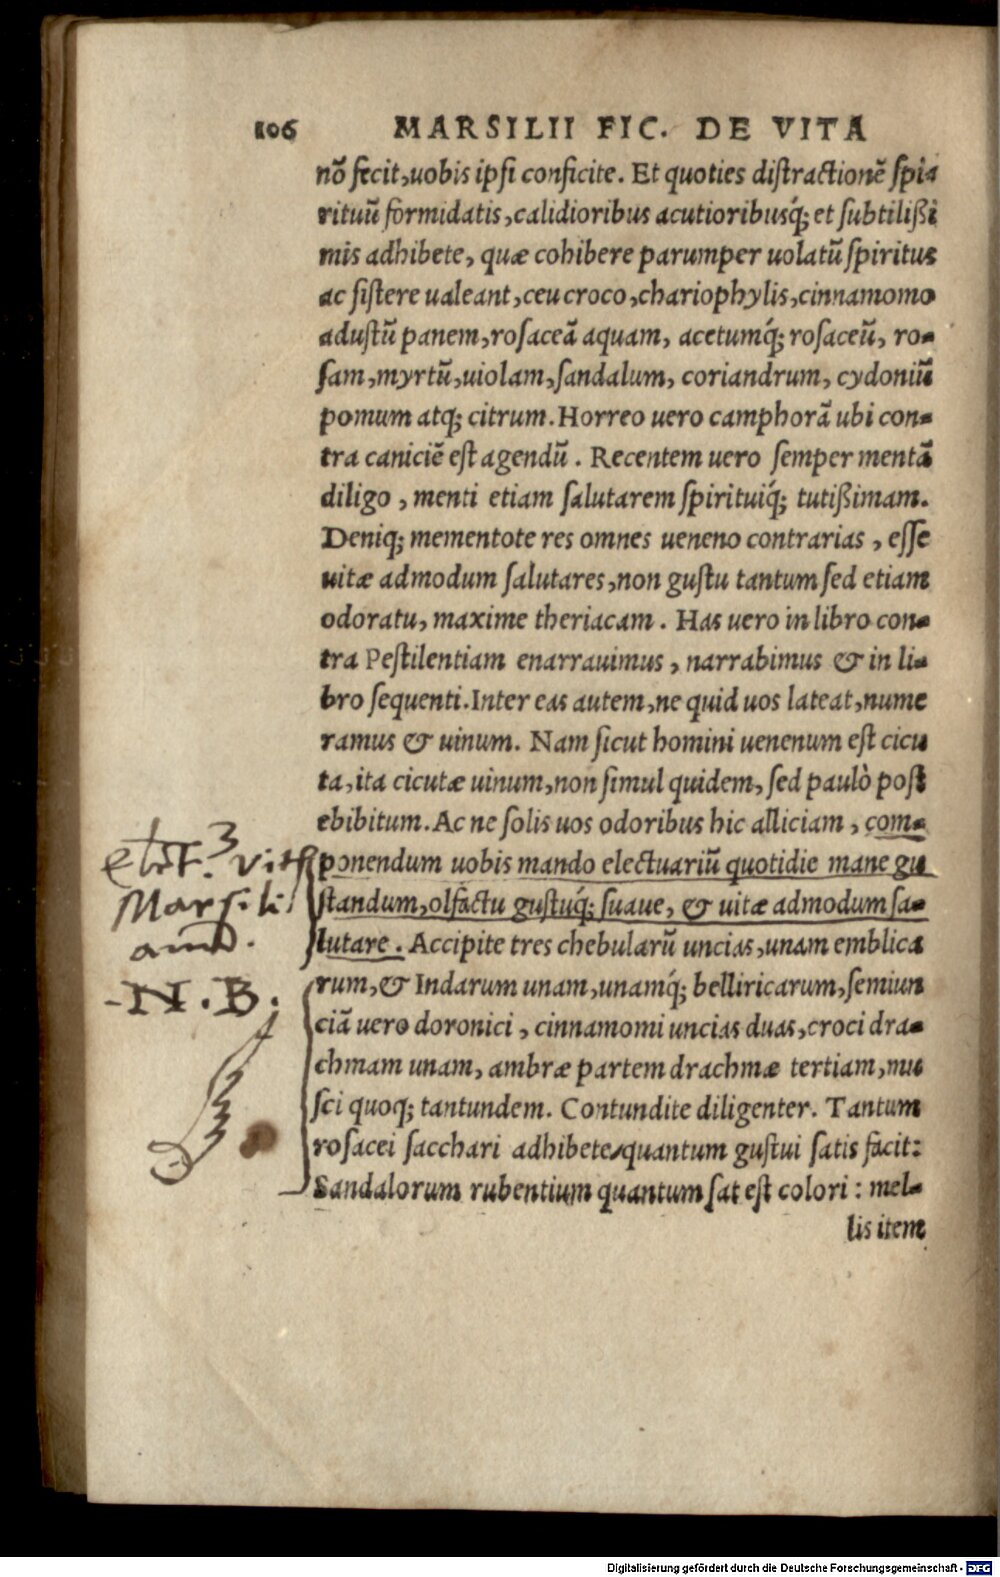 106 MARSILII FIC. DE VITA
nō fecit,uobis ipsi conficite. Et quoties distractionē spi=
rituū formidatis,calidioribus acutioribusq́; et subtilißi
mis adhibete, quæ cohibere parumper uolatū spiritus
ac sistere ualeant,ceu croco,chariophylis,cinnamomo
adustū panem,rosaceā aquam, acetumq́; rosaceū, ro=
sam,myrtū,uiolam,sandalum, coriandrum, cydoniū
pomum atq; citrum. Horreo uero camphorā ubi con=
tra caniciē est agendū. Recentem uero semper mentā
diligo, menti etiam salutarem spirituiq́; tutißimam.
Deniq; mementote res omnes ueneno contrarias, esse
uitæ admodum salutares,non gustu tantum sed etiam
odoratu, maxime theriacam. Has uero in libro con=
tra Pestilentiam enarrauimus, narrabimus & in li=
bro sequenti. Inter eas autem,ne quid uos lateat,nume
ramus & uinum. Nam sicut homini uenenum est cicu
ta,ita cicutæ uinum,non simul quidem, sed paulò post
ebibitum. Ac ne solis uos odoribus hic alliciam, com=
ponendum uobis mando electuariū quotidie mane gu
standum,olfactu gustuq́; suaue, & uitæ admodum sa=
lutare. Accipite tres chebularū uncias,unam emblica
rum,& Indarum unam,unamq́; belliricarum,semiun
ciā uero doronici, cinnamomi uncias duas,croci dra=
chmam unam, ambræ partem drachmæ tertiam,mu
sci quoq; tantundem. Contundite diligenter. Tantum
rosacei sacchari adhibete,quantum gustui satis facit:
Sandalorum rubentium quantum sat est colori: mel=
lis item
Marsili
N.B.
Digitalisierung gefördert durch die Deutsche Forschungsgemeinschaft - DFG